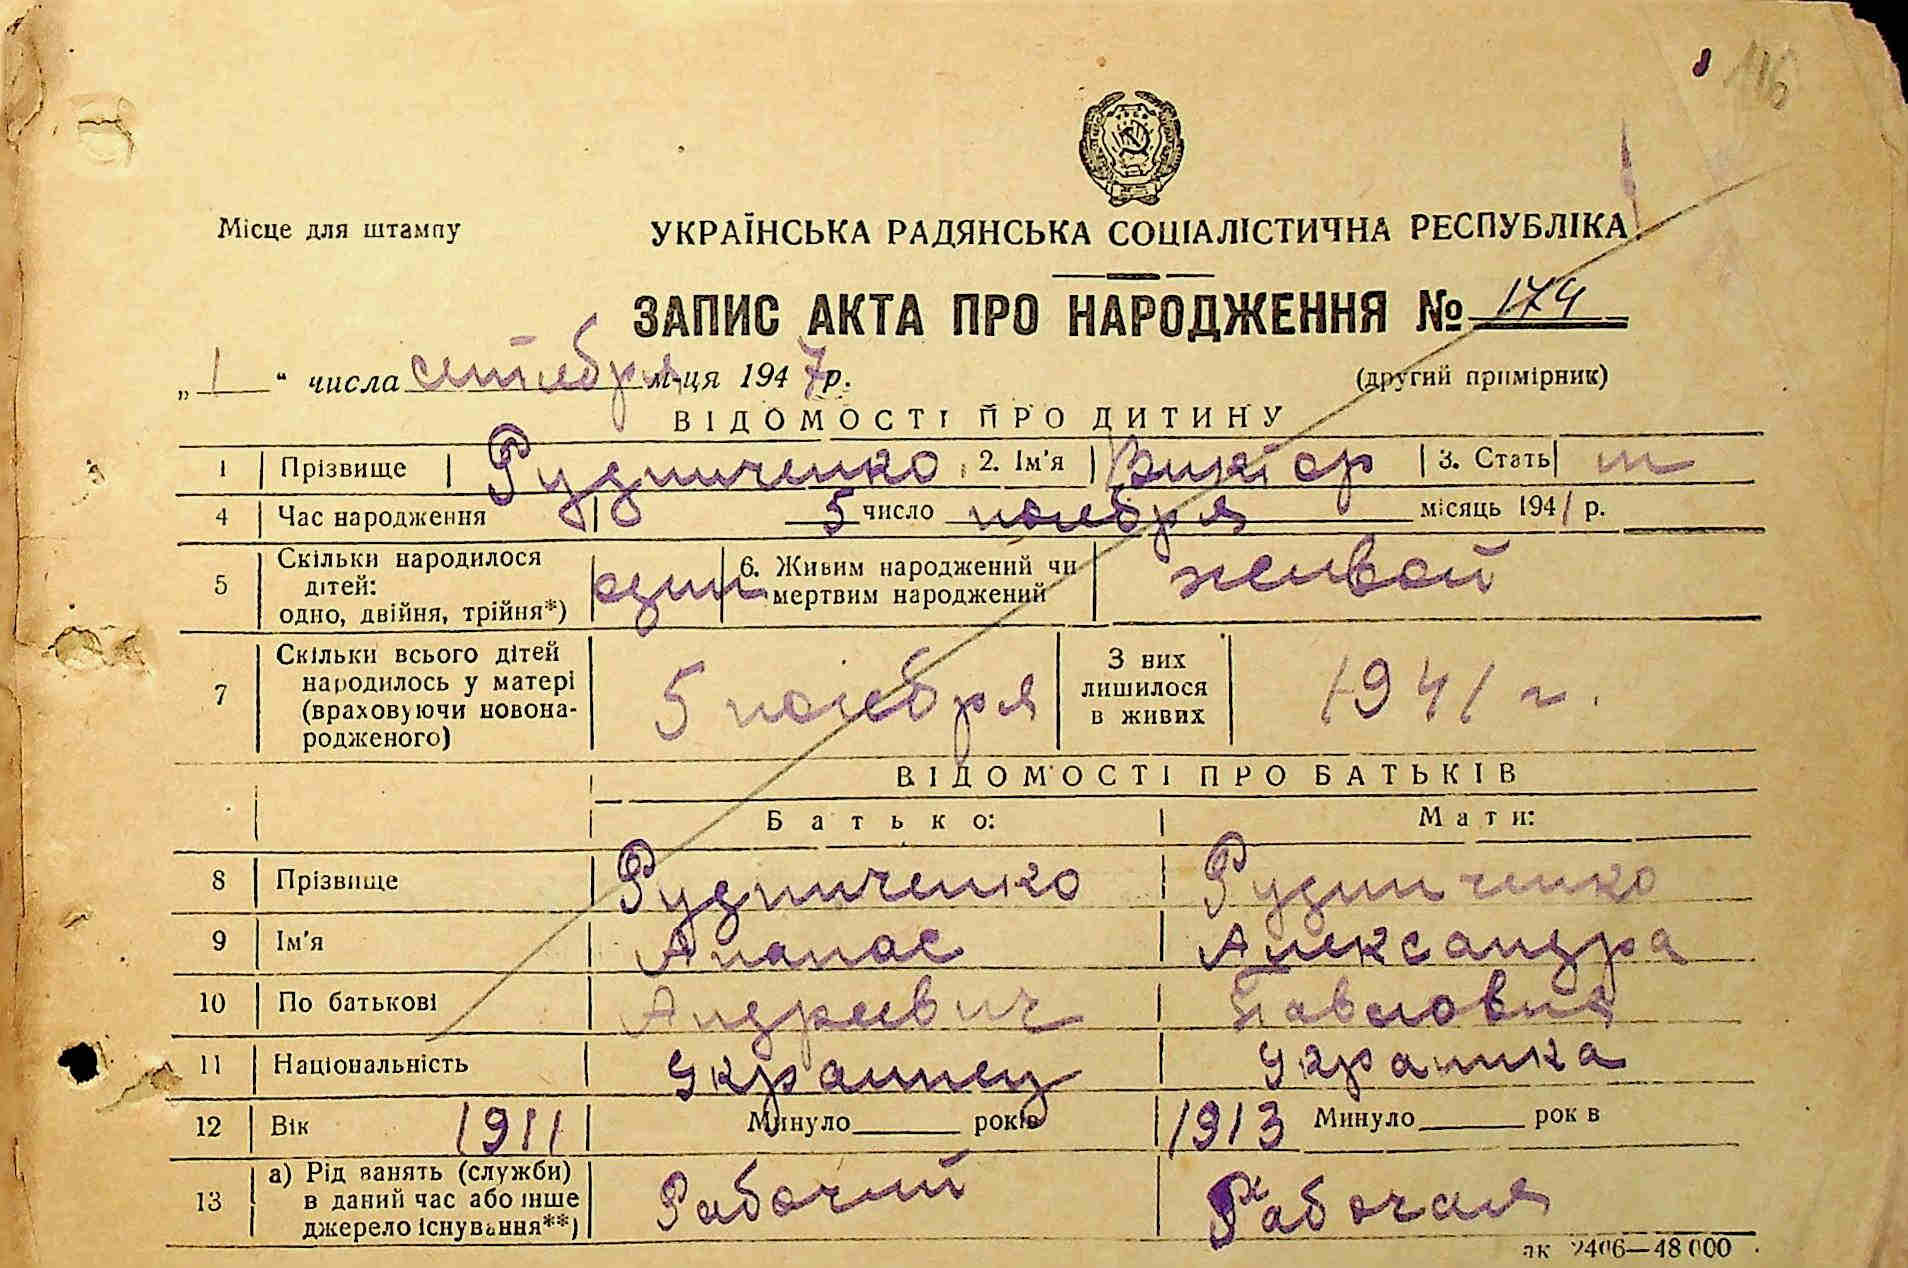 116
Місце для штампу
УКРАЇНСЬКА РАДЯНСЬКА СОЦІАЛІСТИЧНА РЕСПУБЛІКА
ЗАПИС АКТА ПРО НАРОДЖЕННЯ № 174
„ 1 “ числа сентября м-ця 1947 р. (другий примірник)
ВІДОМОСТІ ПРО ДИТИНУ
1 Прізвище Рудниченко 2. Ім'я Виктор 3. Стать м
4 Час народження 5 число ноября місяць 1941 р.
5 Скільки народилося дітей: одно, двійня, трійня*) один 6. Живим народжений чи мертвим народжений живой
7 Скільки всього дітей народилось у матері (враховуючи новонародженого) 5 ноября З них лишилося в живих 1941 г.
ВІДОМОСТІ ПРО БАТЬКІВ
Батько: Мати:
8 Прізвище Рудниченко Рудниченко
9 Ім'я Апанас Александра
10 По батькові Андреевич Павловна
11 Національність Украинец Украинка
12 Вік 1911 Минуло років 1913 Минуло рок в
13 а) Рід занять (служби) в даний час або інше джерело існування**) Рабочий Рабочая
зк 2406—48 000